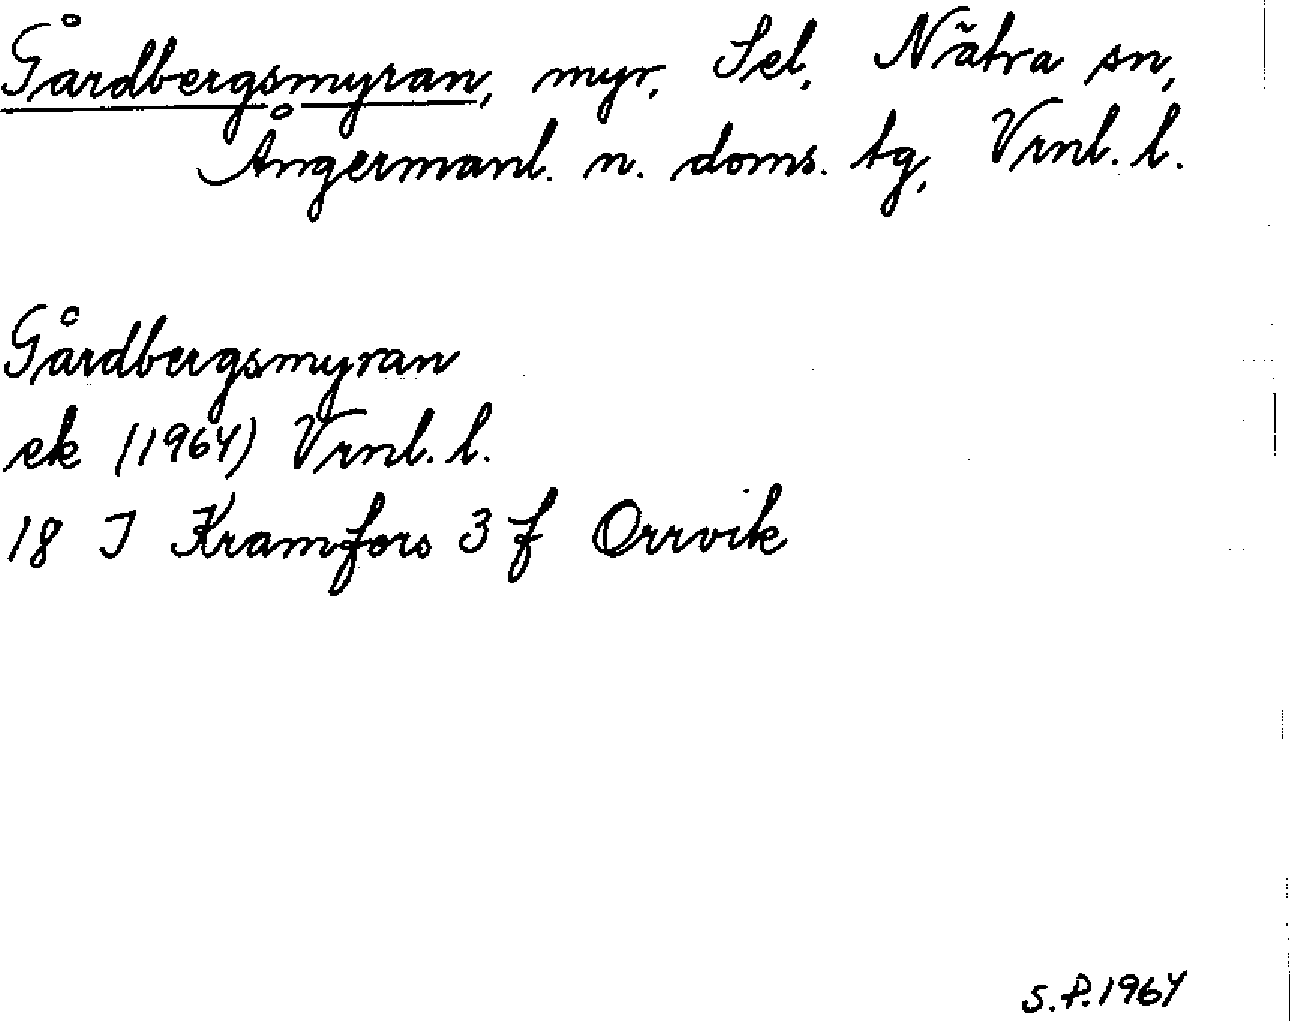 Gårdbergsmyran, myr, Sel, Nätra sn,
Ångermanl. n. doms. tg, Vrnl. l.
Gårdbergsmyran
ek (1964) Vrnl. l.
18 I Kramfors 3 f Orrvik
S.P. 1964